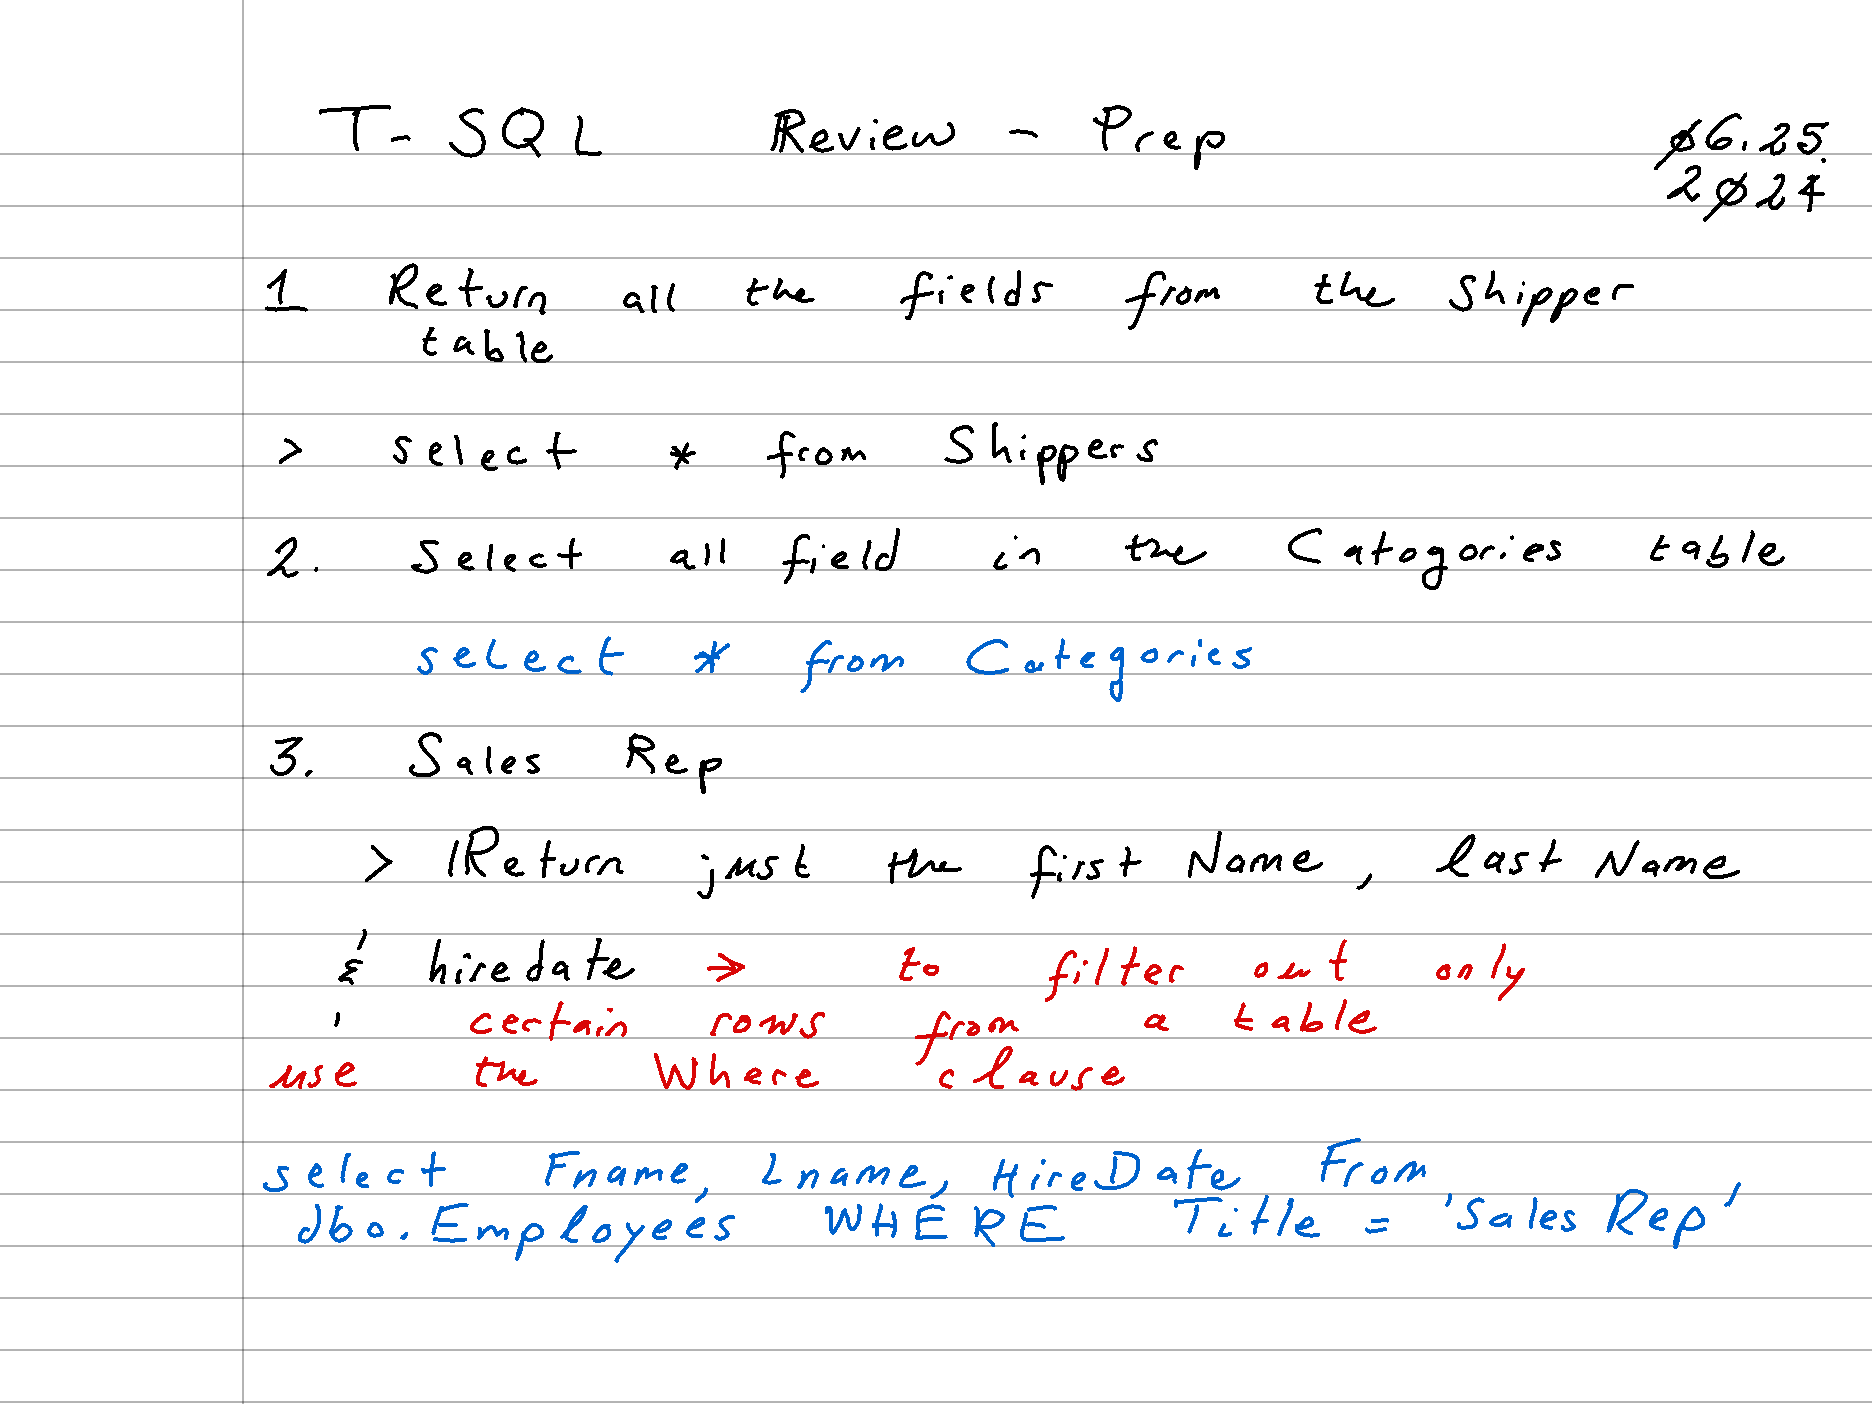 T-SQL Review - Prep
06.25.
2024
1 Return all the fields from the Shipper
table
> select * from Shippers
2. Select all field in the Catogories table
select * from Categories
3. Sales Rep
> Return just the first Name, last Name
& hiredate → to filter out only
certain rows from a table
use the Where clause
select Fname, Lname, HireDate From
dbo.Employees WHERE Title = 'Sales Rep'